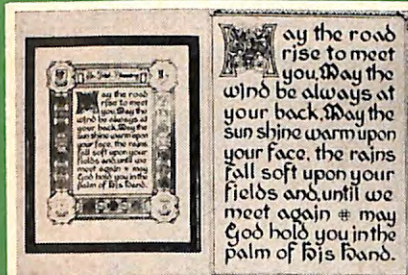 An Irish Blessing
May the road
rise to meet
you. May the
wind be always at
your back. May the
sun shine warm upon
your face, the rains
fall soft upon your
fields and until we
meet again # may
God hold you in the
palm of his hand.
May the road
rise to meet
you. May the
wind be always at
your back. May the
sun shine warm upon
your face, the rains
fall soft upon your
fields and until we
meet again # may
God hold you in the
palm of his hand.